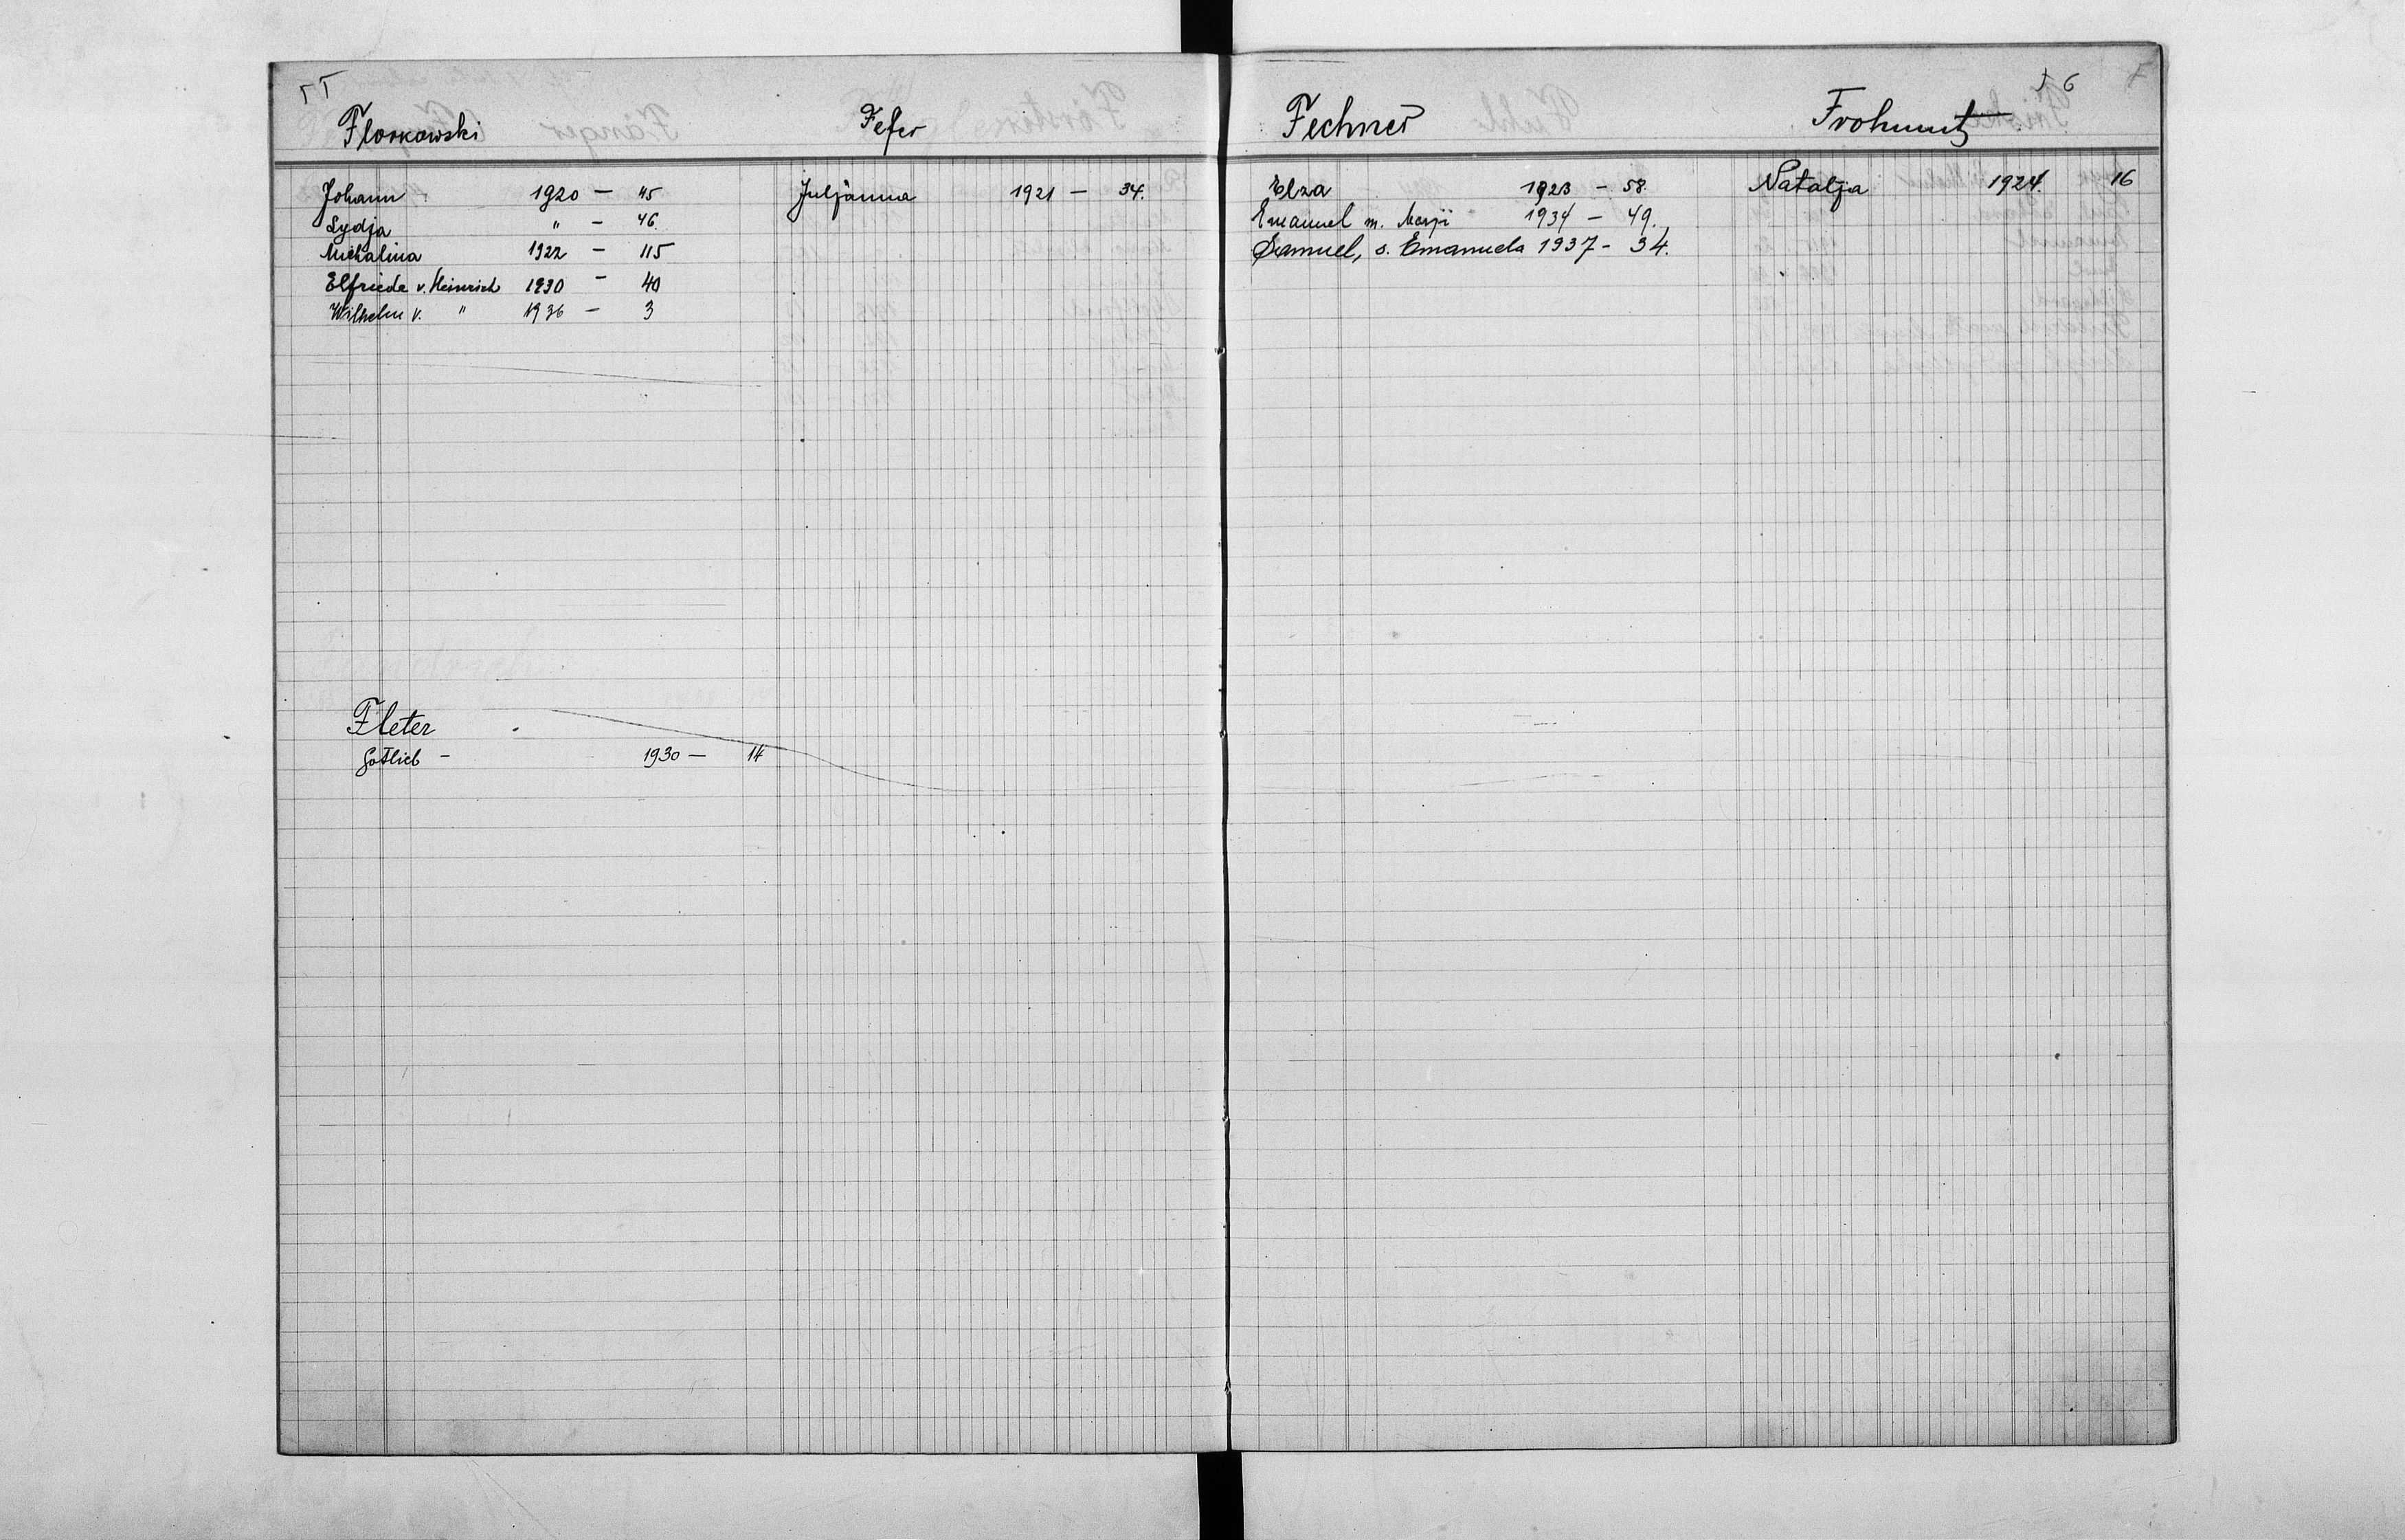 55
Florkowski
Johann 1920 — 45
Lydja " — 46.
Michalina 1922 — 115
Elfriede v. Heinrich 1930 — 40
Wilhelm v. " 1936 — 3
Fleter
Gotlieb — 1930 — 14
Fefer
Juljanna 1921 — 34.
56
F
Fechner
Elza 1923 — 58.
Emanuel m. 1934 — 49.
Samuel, s. Emanuela 1937 - 34.
Natalja 1924. 16